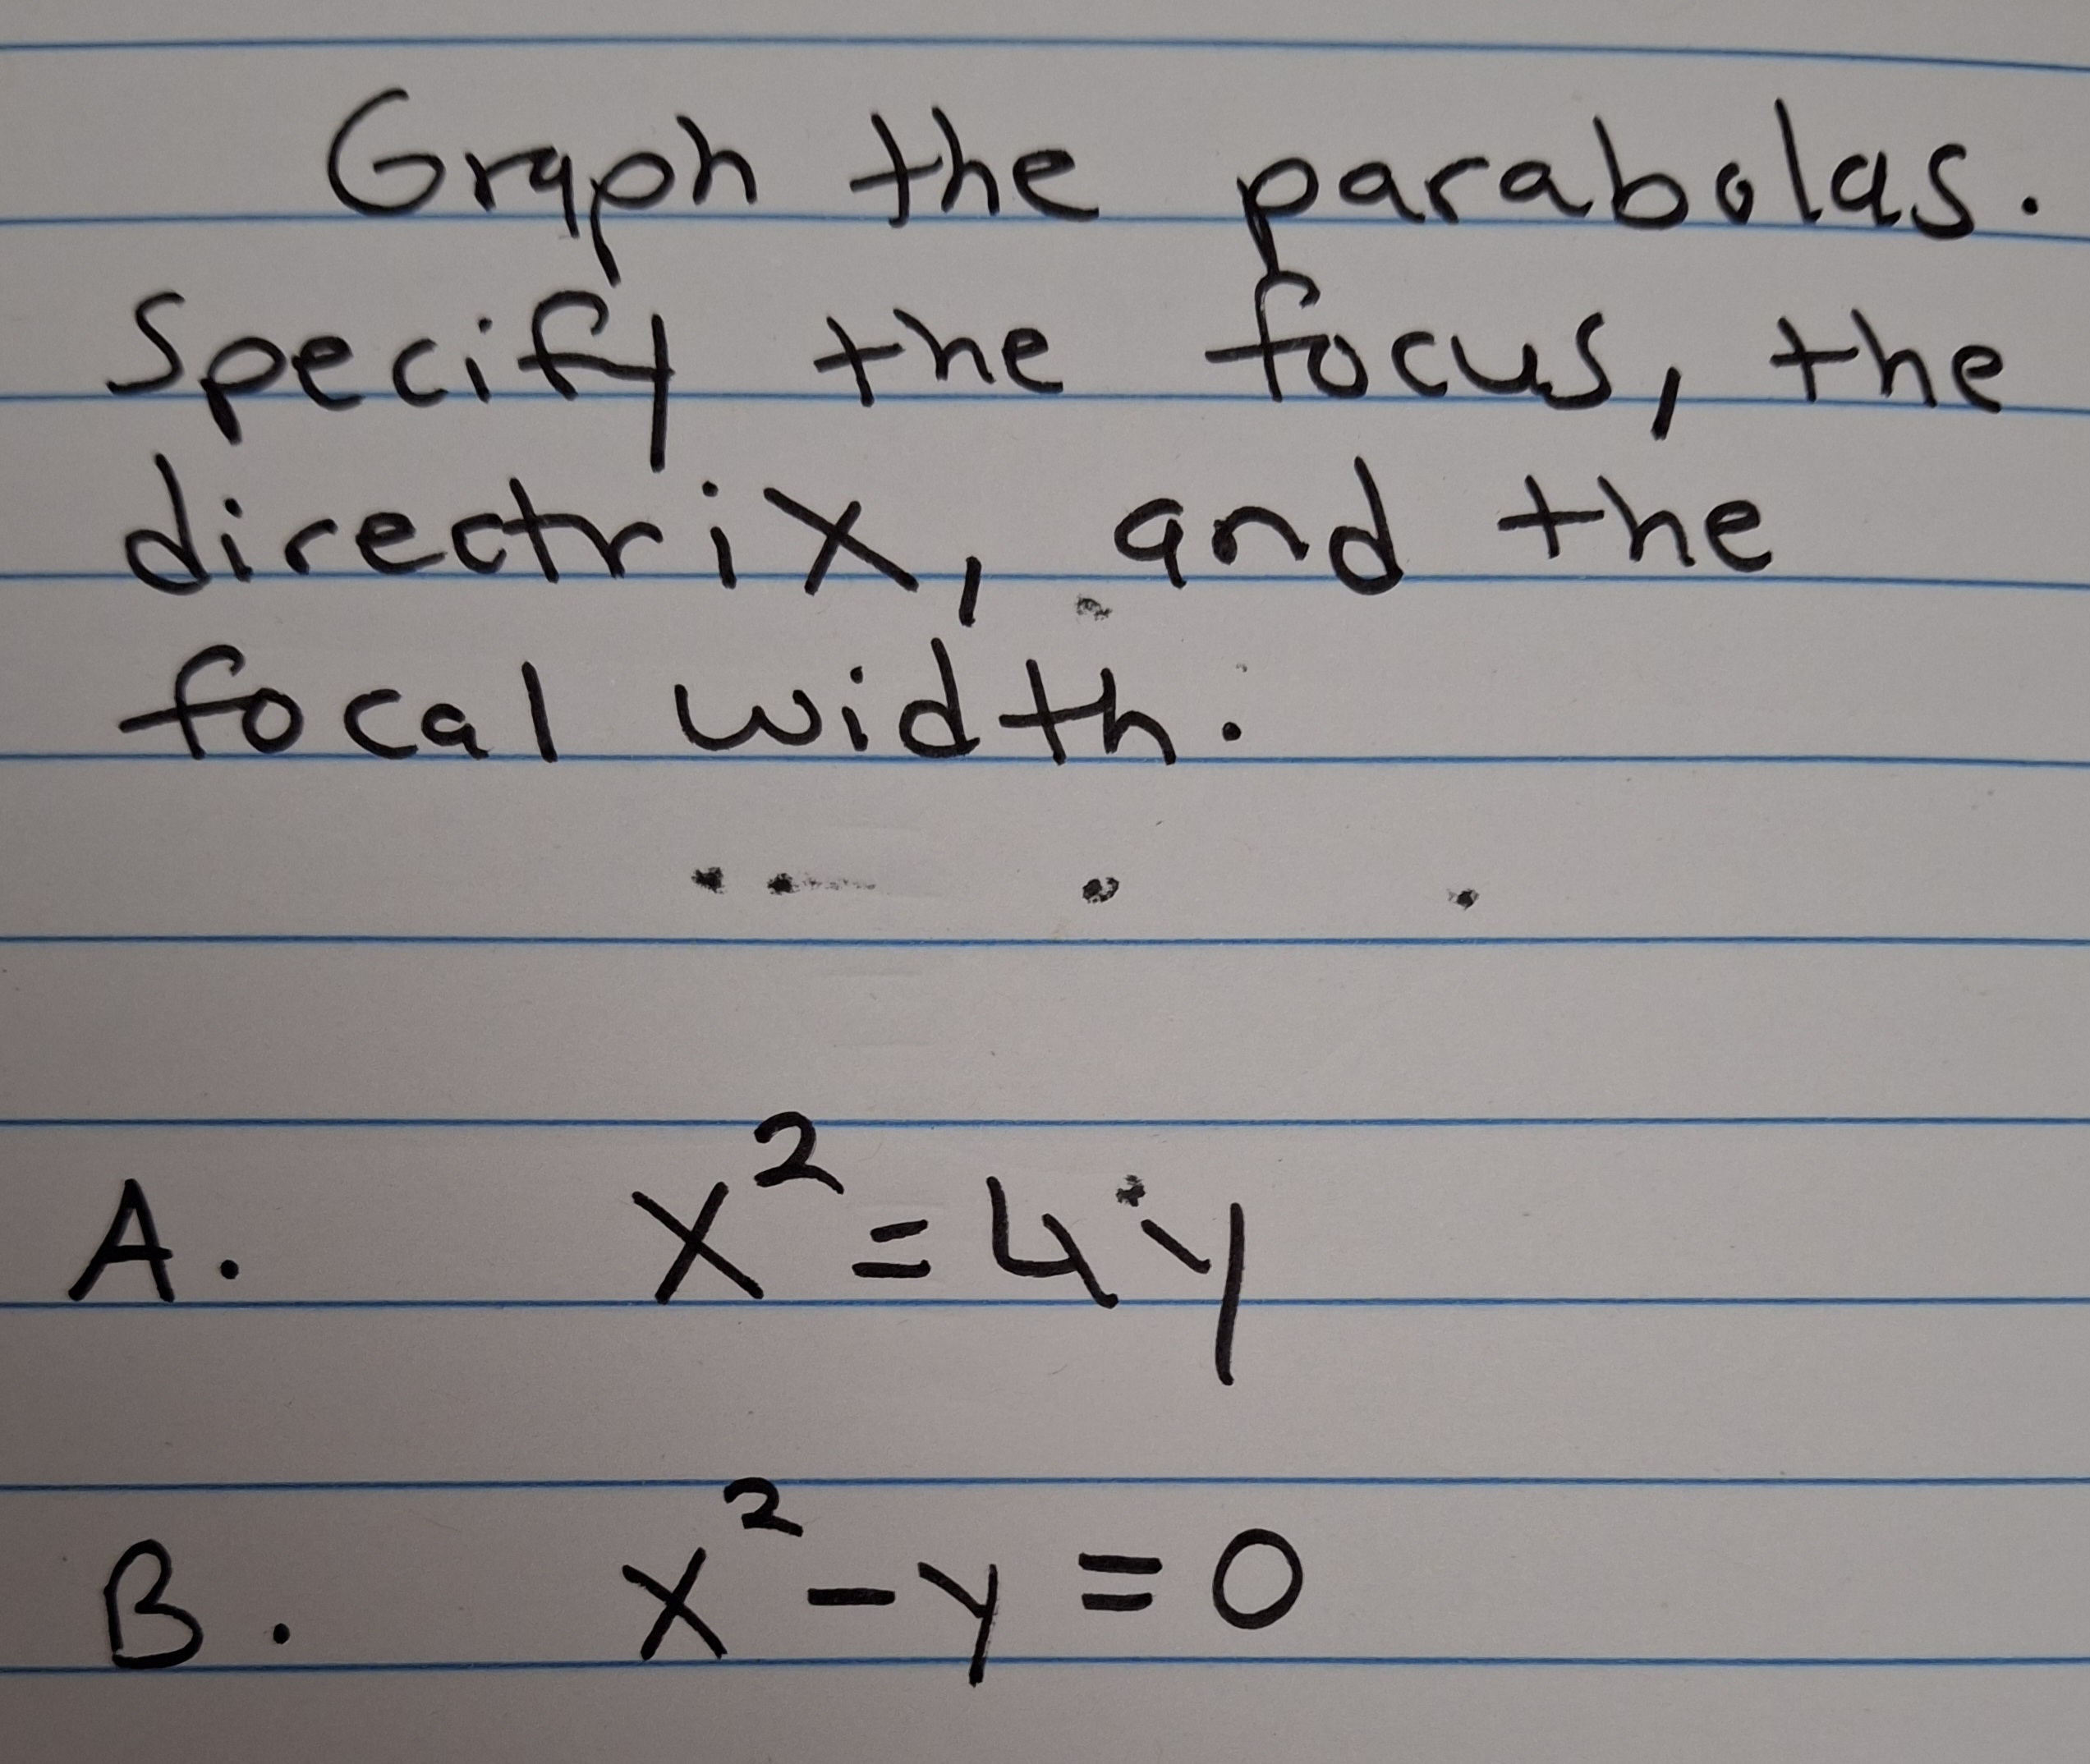 Graph the parabolas.
Specify the focus, the
directrix, and the
focal width.
A. x² = 4y
B. x² - y = 0